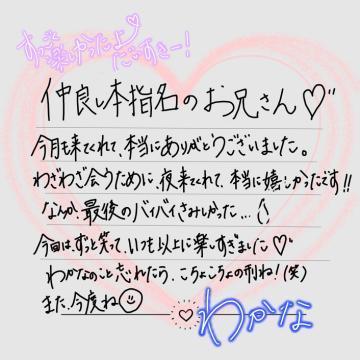 すっごく楽しかったよ
だいすきー!
仲良し本指名のお兄さん♡
今月も来てくれて、本当にありがとうございました。
わざわざ会うために、夜来てくれて、本当に嬉しかったです!!
なんか、最後のバイバイさみしかった…
今回は、ずっと笑って、いつも以上に楽しすぎました♡
わかなのこと忘れたら、こちょこちょの刑ね!(笑)
また、今度ね☺
わかな